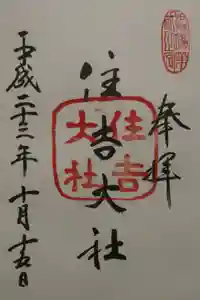 奉拝
住吉大社
住吉大社
平成二十三年十月十五日